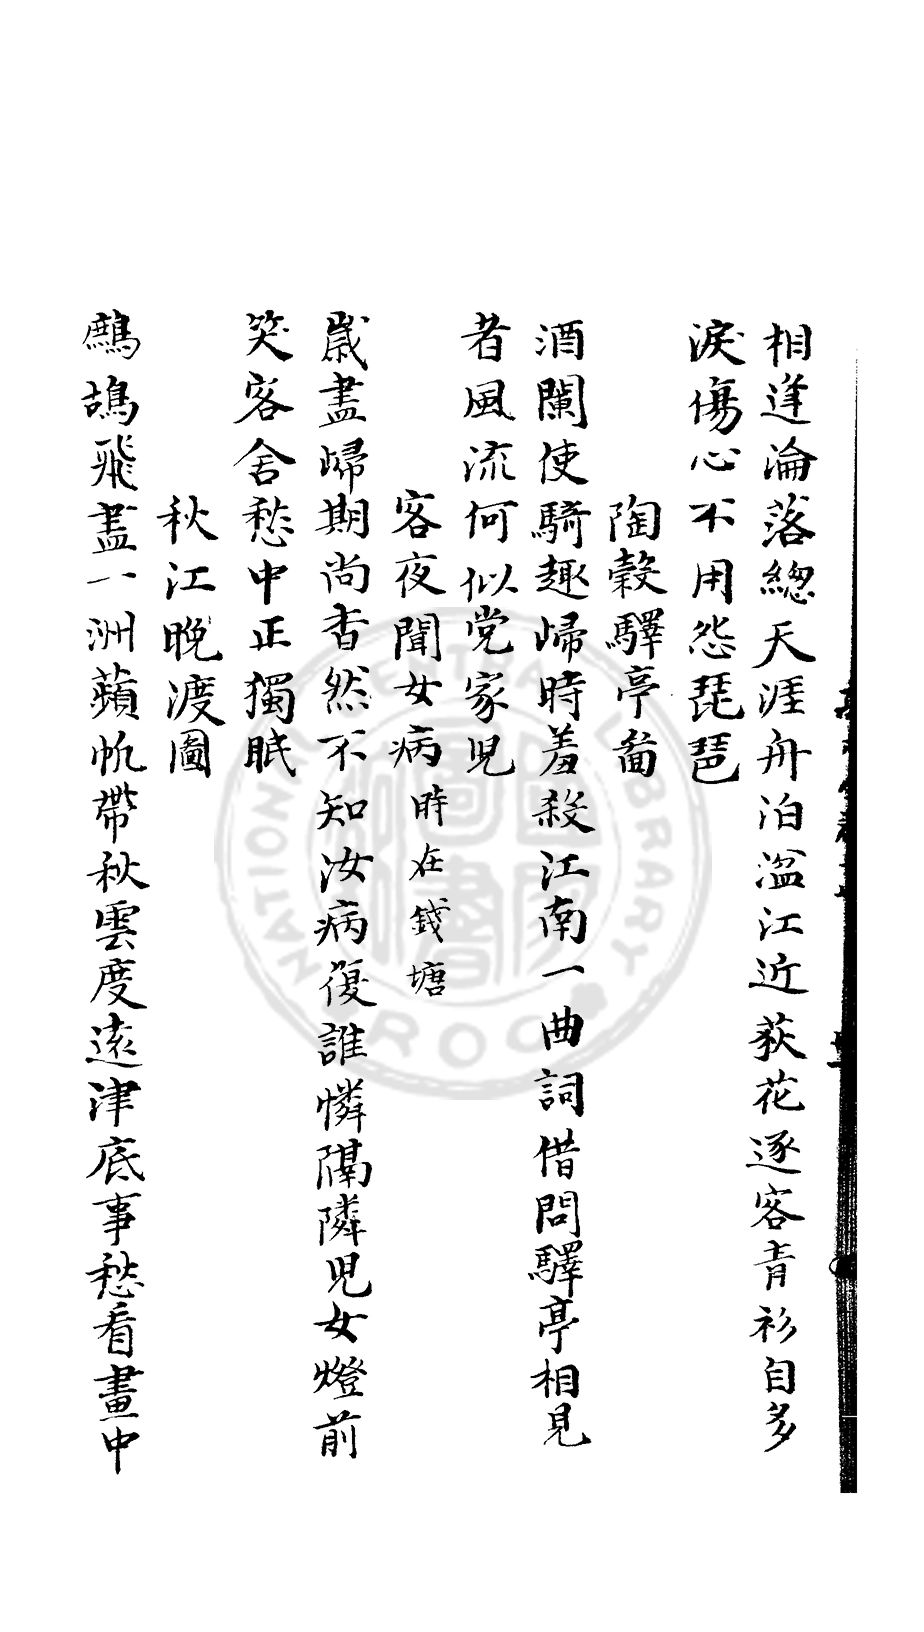 相逢淪落總天涯舟泊湓江近荻花逐客青衫自多
淚傷心不用怨琵琶
陶穀驛亭啚
酒闌使騎趣歸時羞殺江南一曲詞借問驛亭相見
者風流何似党家児
客夜聞女病時在錢塘
歲盡歸期尚杳然不知汝病復誰憐隔隣児女燈前
笑客舍愁中正獨眠
秋江晚渡圖
鷓鴣飛盡一洲蘋帆帶秋雲度遠津底事愁看畫中
NATIONAL CENTRAL LIBRARY
ROC